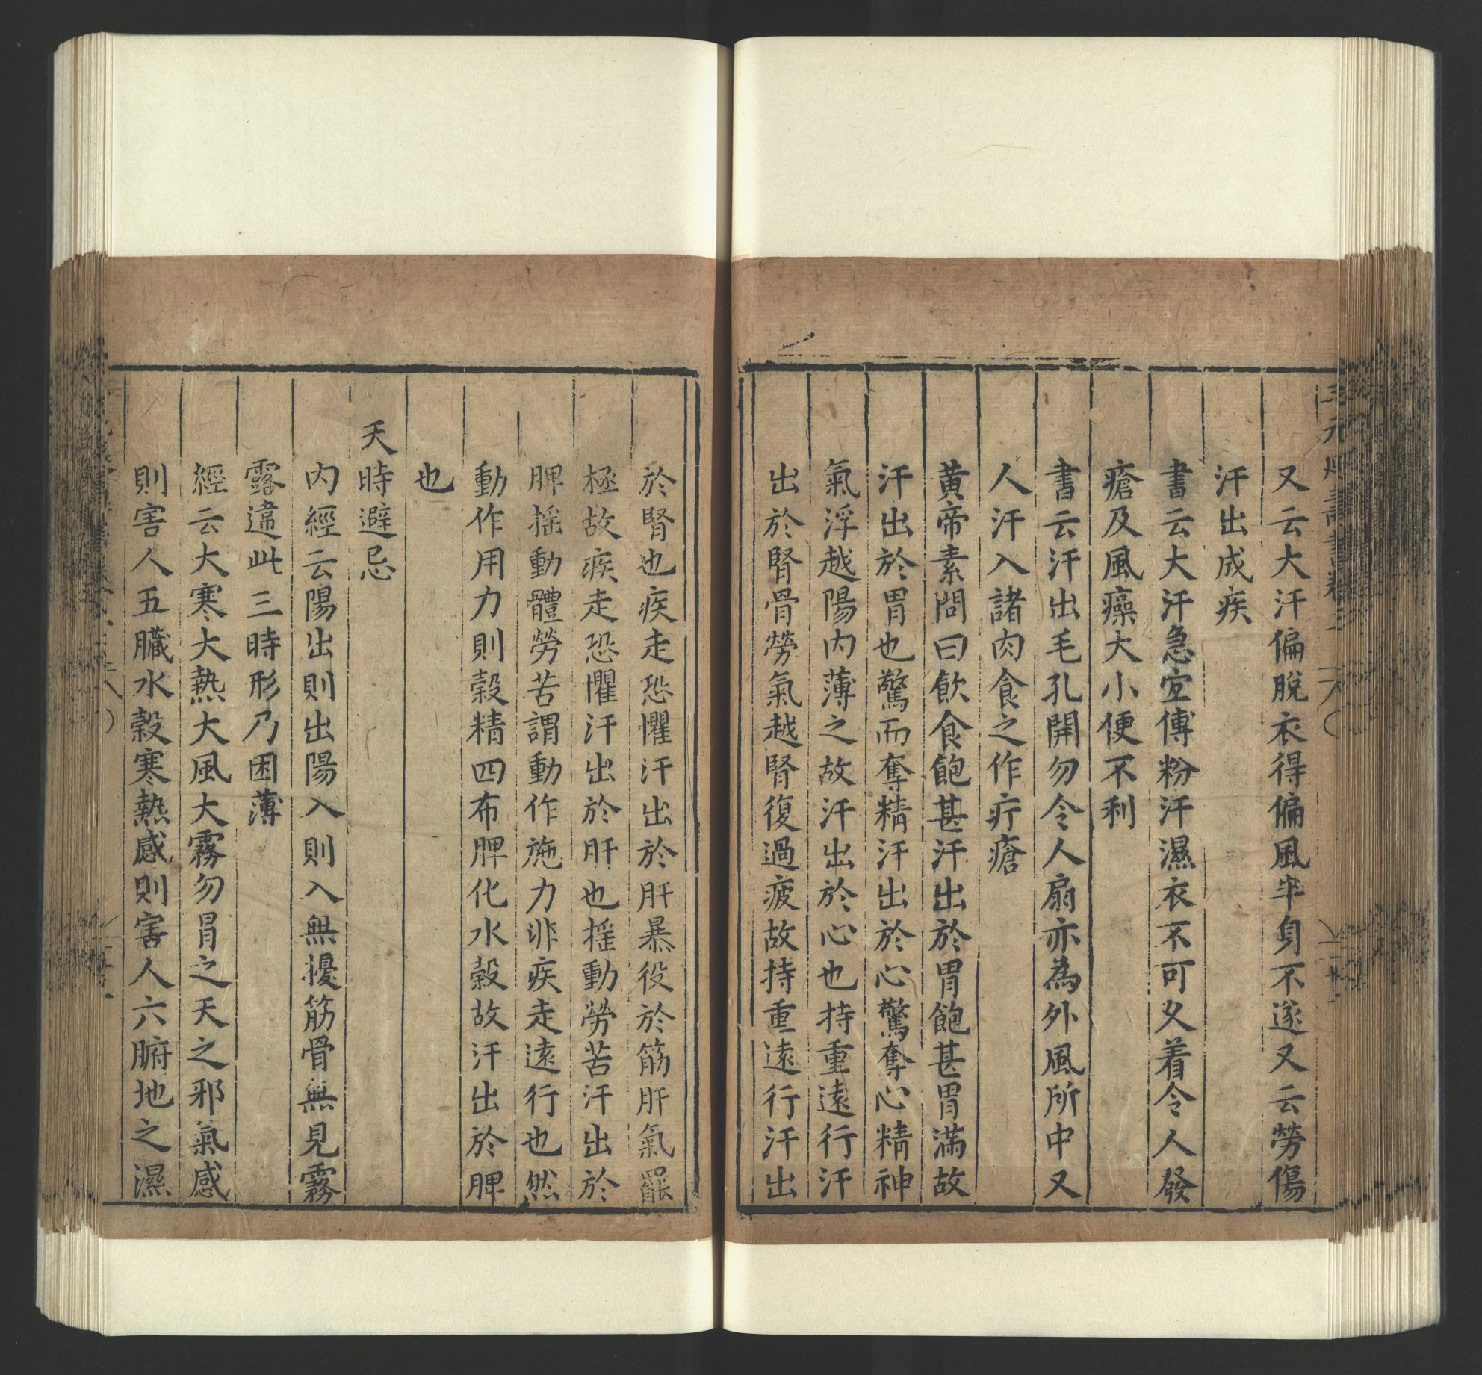 又云大汗偏脫衣得偏風半身不遂又云勞傷
汗出成疾
書云大汗急宜傅粉汗濕衣不可久着令人發
瘡及風瘙大小便不利
書云汗出毛孔開勿令人扇亦為外風所中又
人汗入諸肉食之作疔瘡
黃帝素問曰飲食飽甚汗出於胃飽甚胃滿故
汗出於胃也驚而奪精汗出於心驚奪心精神
氣浮越陽內薄之故汗出於心也持重遠行汗
出於腎骨勞氣越腎復過疲故持重遠行汗出
於腎也疾走恐懼汗出於肝暴役於筋肝氣罷
極故疾走恐懼汗出於肝也搖動勞苦汗出於
脾搖動體勞苦謂動作施力非疾走遠行也然
動作用力則穀精四布脾化水穀故汗出於脾
也
天時避忌
內經云陽出則出陽入則入無擾筋骨無見霧
露違此三時形乃困薄
經云大寒大熱大風大霧勿冒之天之邪氣感
則害人五臟水穀寒熱感則害人六腑地之濕